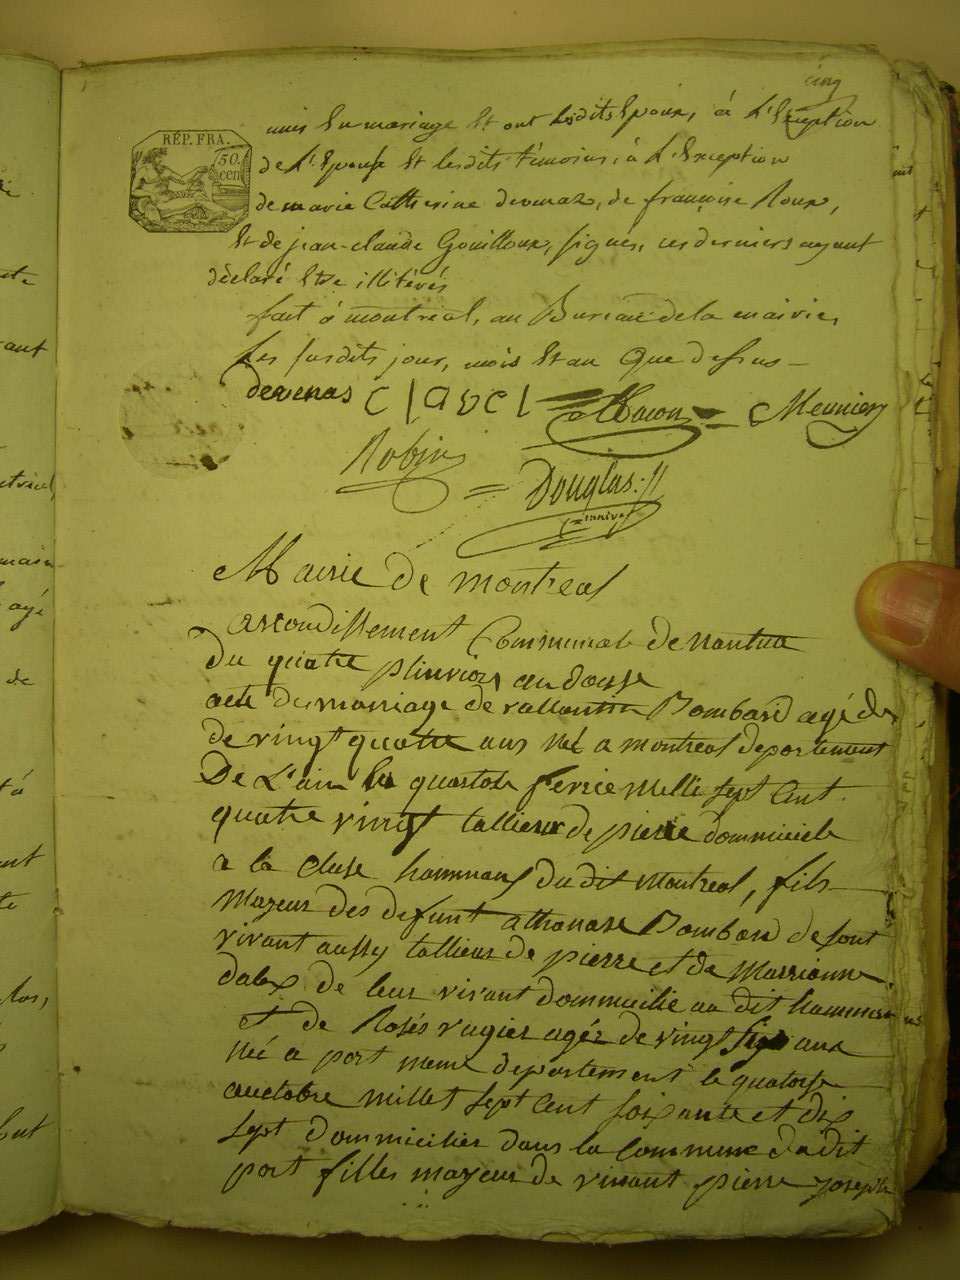 cinq
RÉP. FRA.
50.
cen
unis En mariage Et ont lesdits Epoux, à L'Exception
de L'Epouse Et lesdits témoins, à L'Exception
de marie Catherine devenas, de françoise Roux,
Et de jean-claude Gouilloux, signés, ces derniers ayant
déclaré Etre illitérés
fait à montréal, au Bureau de la mairie,
Les susdits jour, mois Et an Que dessus
devenas clavel Chacon Meunier
Robin
Douglas
Mairie de montreal
arrondissement Communal de nantua
Du quatre pluviose an dousse
acte du marriage de vallantin Bombard agé de
de vingt quatre ans Né a montreal departement
De L'ain le quatorse fevrie mille sept Cent
quatre vingt tallieur de pierre dommicielé
a la Cluse hammau du dit montreal, fils
mayeur des defunt athanase Bombard de sont
vivant aussy tallieur de pierre et de Marrianne
dalex de leur vivant dommicilié au dit hammau
et de Rosés vugier agéz de vingt six ans
Né a port meme departement le quatorse
auctobre millet sept Cent soixante et dix
sept dommicilier dans la Commune du dit
port filles mayeur de vivant pierre joseph